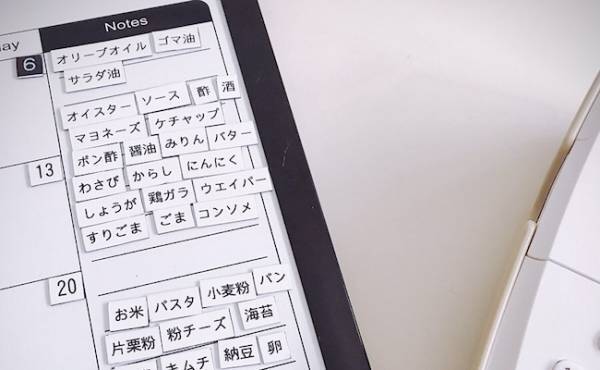 Notes
ay
6
オリーブオイル ゴマ油
サラダ油
オイスター ソース 酢 酒
マヨネーズ ケチャップ
ポン酢 醤油 みりん バター
13
わさび からし にんにく
しょうが 鶏ガラ ウエイパー
すりごま ごま コンソメ
20
お米 パスタ 小麦粉 パン
片栗粉 粉チーズ 海苔
キムチ 納豆 卵